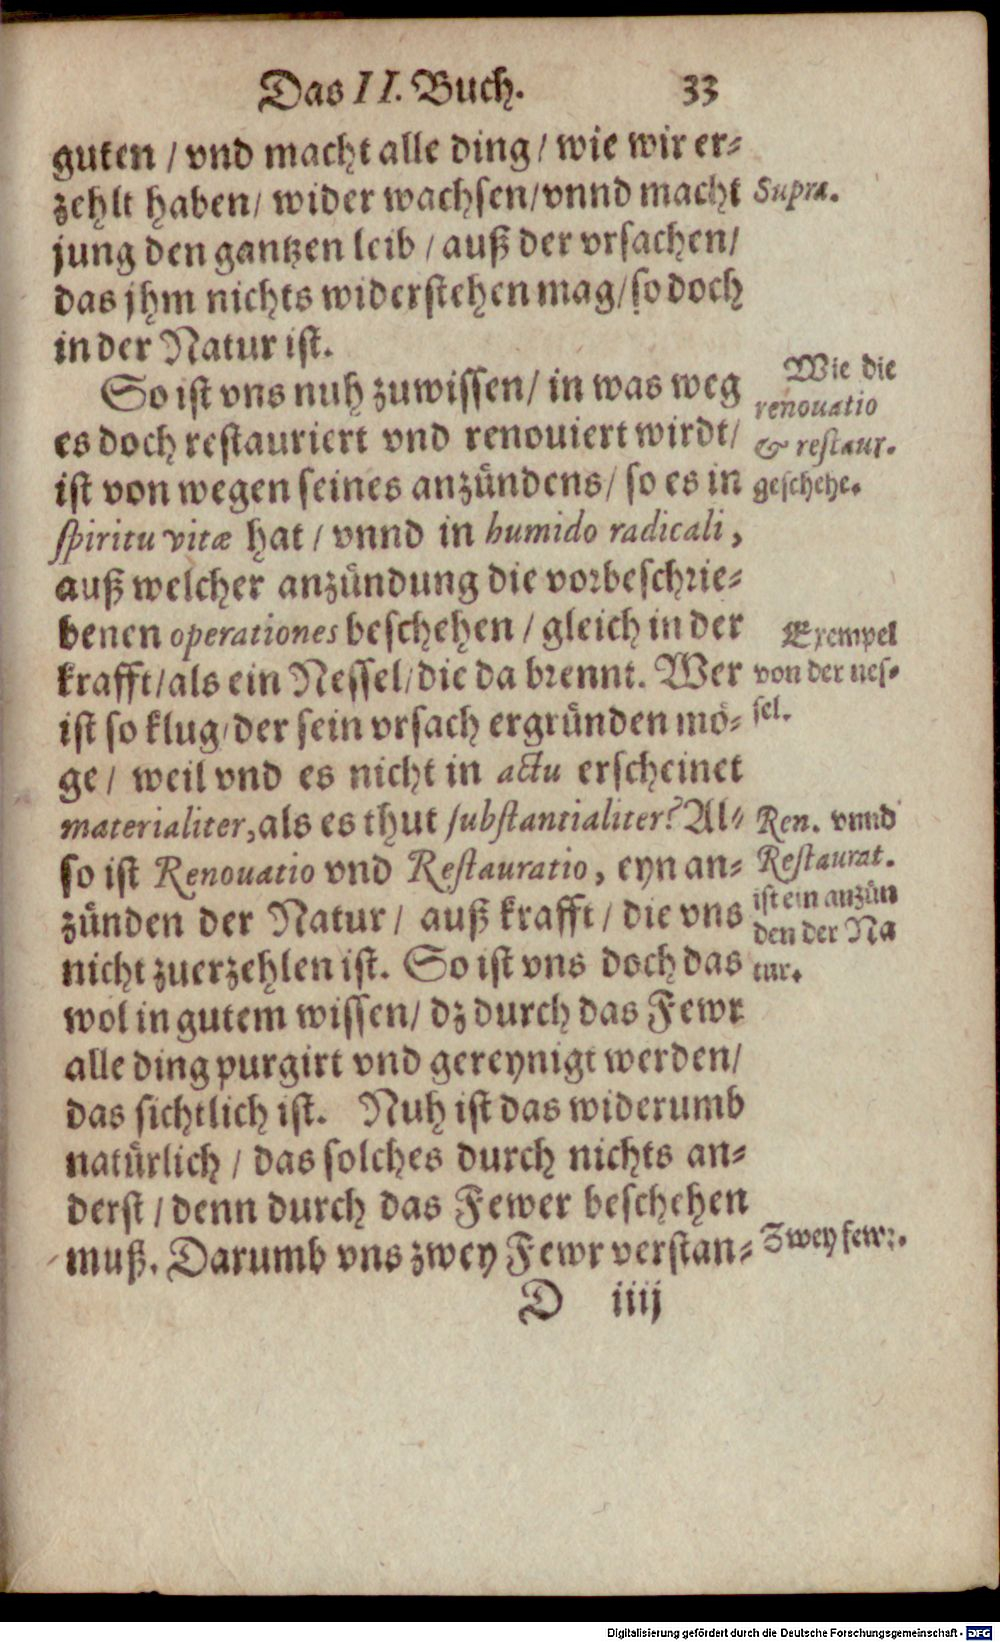 Das II. Buch. 33
guten / vnd macht alle ding / wie wir er-
zehlt haben / wider wachsen / vnnd macht
Supra.
jung den gantzen leib / auß der vrsachen /
das jhm nichts widerstehen mag / so doch
in der Natur ist.
So ist vns nuh zuwissen / in was weg
es doch restauriert vnd renouiert wirdt /
ist von wegen seines anzündens / so es in
Wie die
renouatio
& restaur.
geschehe.
spiritu vitæ hat / vnnd in humido radicali,
auß welcher anzündung die vorbeschrie-
benen operationes beschehen / gleich in der
krafft / als ein Nessel / die da brennt. Wer
ist so klug / der sein vrsach ergründen mö-
Exempel
von der nes-
sel.
ge / weil vnd es nicht in actu erscheinet
materialiter, als es thut substantialiter? Al-
so ist Renouatio vnd Restauratio, eyn an-
zünden der Natur / auß krafft / die vns
nicht zuerzehlen ist. So ist vns doch das
Ren. vnnd
Restaurat.
ist ein anzün
den der Na
tur.
wol in gutem wissen / dz durch das Fewr
alle ding purgirt vnd gereynigt werden /
das sichtlich ist. Nuh ist das widerumb
natürlich / das solches durch nichts an-
derst / denn durch das Fewer beschehen
muß. Darumb vns zwey Fewr verstan-
Zwey fewr.
D iiij
Digitalisierung gefördert durch die Deutsche Forschungsgemeinschaft - DFG